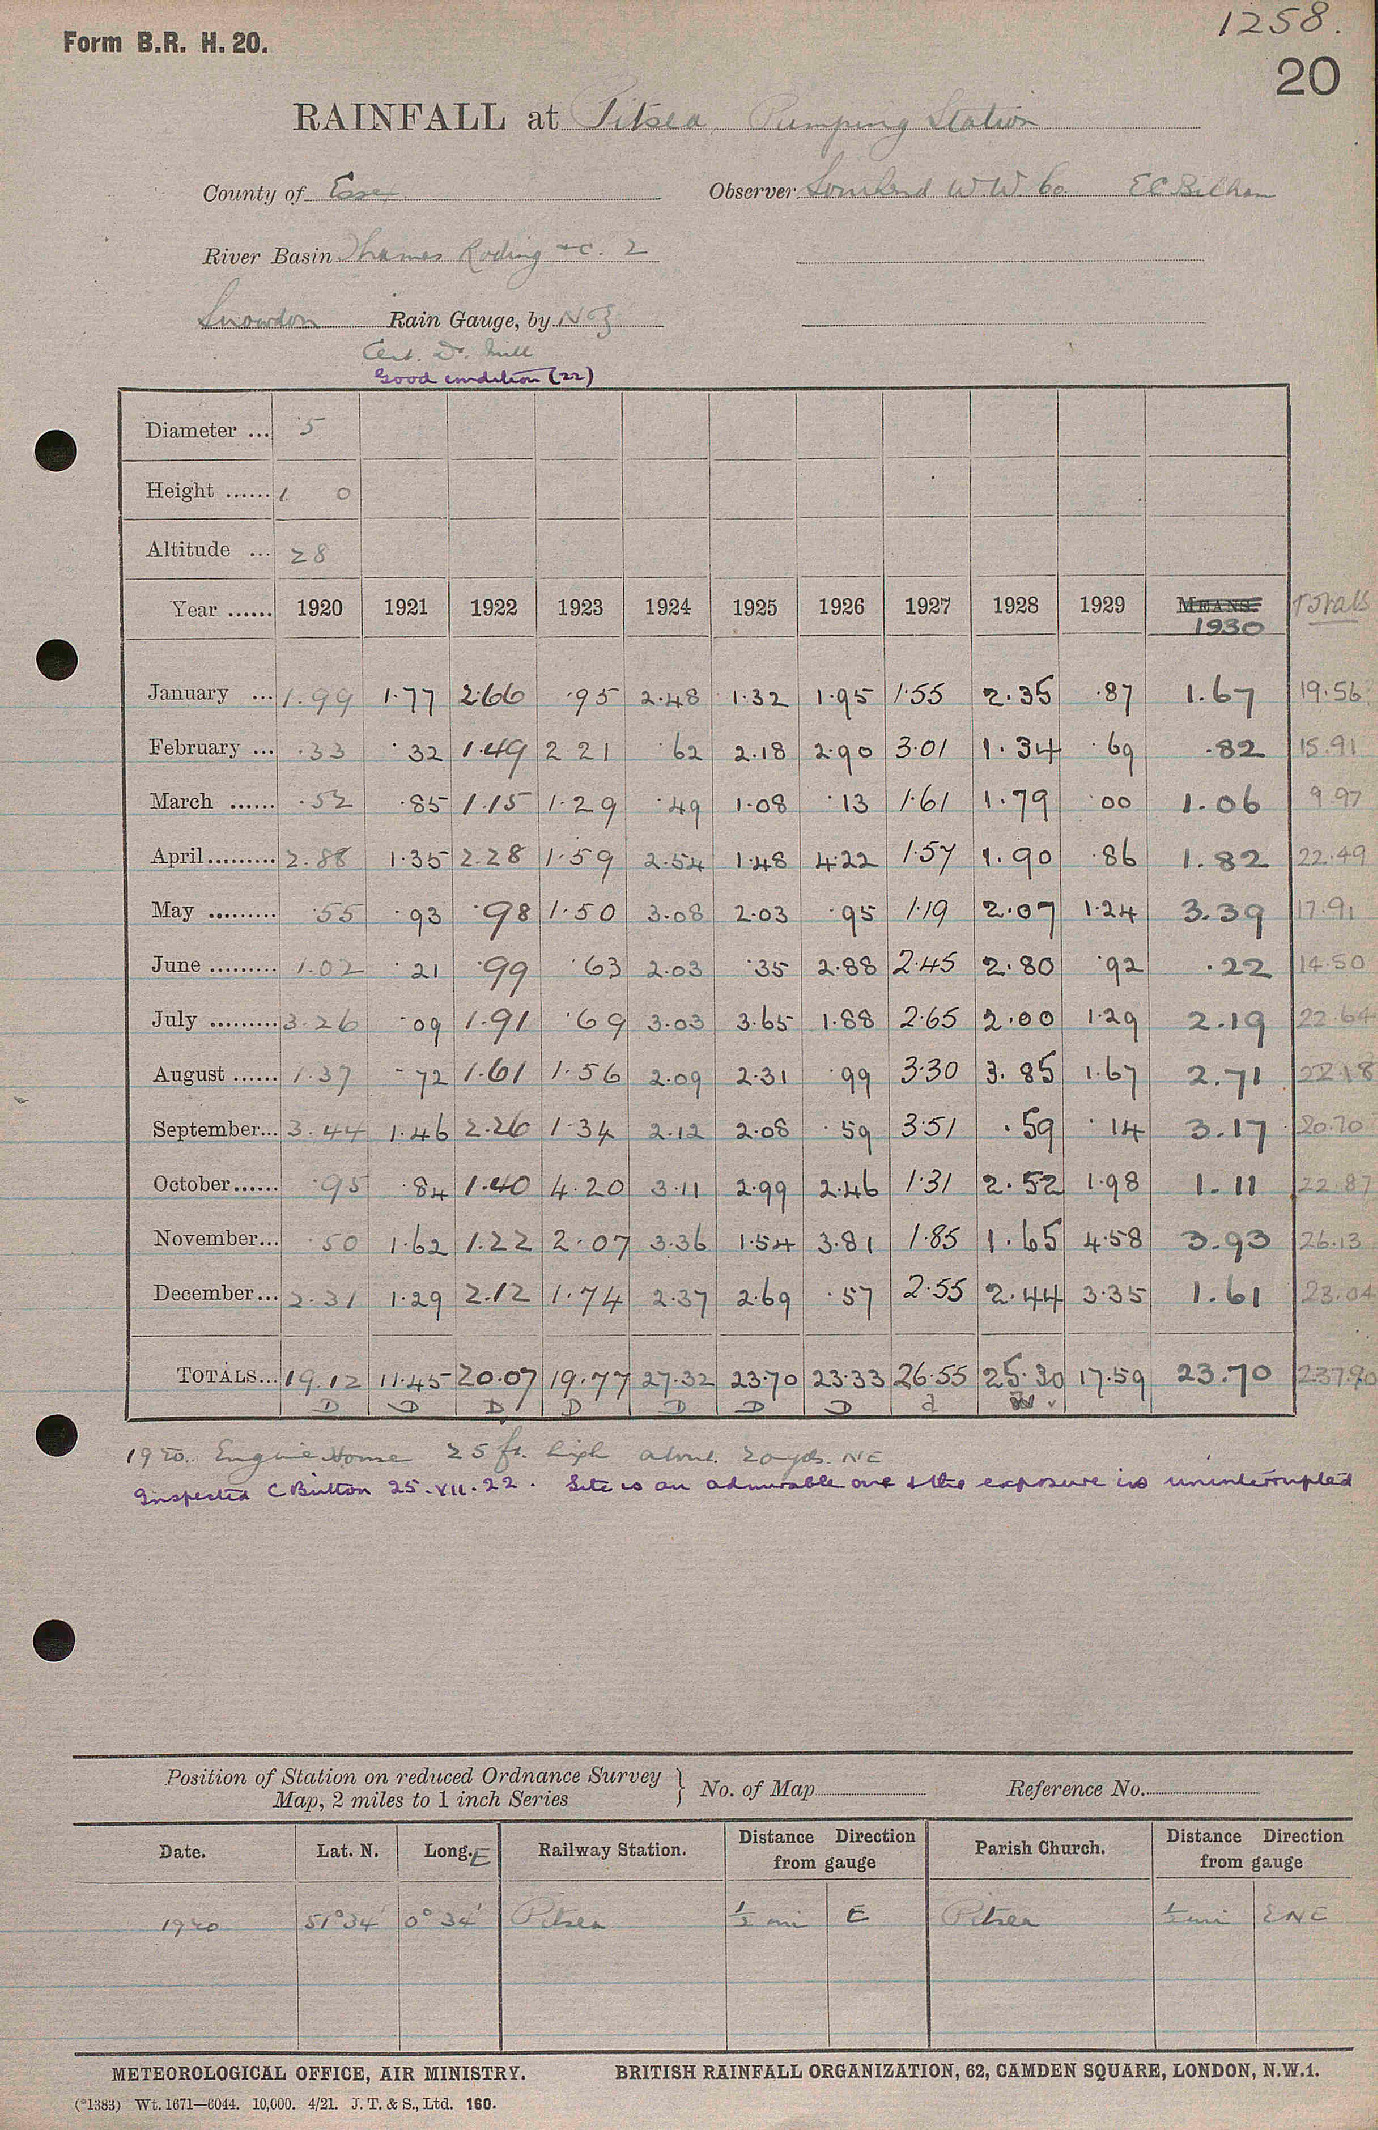 1258.
Form B.R. H. 20.
20
RAINFALL at Pitsea Pumping Station
County of Essex Observer Southend W W Co E C Bilham
River Basin Thames Roding &c. 2
Snowdon Rain Gauge, by N Z
Cert. Dr. Mill
Good condition (22)
Diameter ... 5
Height ...... 1 0
Altitude ... 28
Year ...... 1920 1921 1922 1923 1924 1925 1926 1927 1928 1929 MEANS. 1930 Totals
January ... 1.99 1.77 2.66 .95 2.48 1.32 1.95 1.55 2.35 .87 1.67 19.56
February ... .33 .32 1.49 2 21 .62 2.18 2.90 3.01 1.34 .69 .82 15.91
March ...... .52 .85 1.15 1.29 .49 1.08 .13 1.61 1.79 .00 1.06 9.97
April......... 2.88 1.35 2.28 1.59 2.54 1.48 4.22 1.57 1.90 .86 1.82 22.49
May ......... .55 .93 .98 1.50 3.08 2.03 .95 1.19 2.07 1.24 3.39 17.91
June ......... 1.02 .21 .99 .63 2.03 .35 2.88 2.45 2.80 .92 .22 14.50
July ......... 3.26 .09 1.91 .69 3.03 3.65 1.88 2.65 2.00 1.29 2.19 22.64
August ...... 1.37 .72 1.61 1.56 2.09 2.31 .99 3.30 3.85 1.67 2.71 22.18
September... 3.44 1.46 2.26 1.34 2.12 2.08 .59 3.51 .59 .14 3.17 20.70
October...... .95 .84 1.40 4.20 3.11 2.99 2.46 1.31 2.52 1.98 1.11 22.87
November... .50 1.62 1.22 2.07 3.36 1.54 3.81 1.85 1.65 4.58 3.93 26.13
December... 2.31 1.29 2.12 1.74 2.37 2.69 .57 2.55 2.44 3.35 1.61 23.04
TOTALS... 19.12 11.45 20.07 19.77 27.32 23.70 23.33 26.55 25.30 17.59 23.70 237.90
D D D D D D D d
1920. Engine House 25 ft. high about 20 yds. NE
Inspected C Britton 25.VII.22. Site is an admirable one & the exposure is uninterrupted
Position of Station on reduced Ordnance Survey Map, 2 miles to 1 inch Series } No. of Map Reference No.
Date. Lat. N. Long. E Railway Station. Distance Direction from gauge Parish Church. Distance Direction from gauge
1920 51° 34' 0° 34' Pitsea ½ mi E Pitsea ½ mi ENE
METEOROLOGICAL OFFICE, AIR MINISTRY. BRITISH RAINFALL ORGANIZATION, 62, CAMDEN SQUARE, LONDON, N.W.1.
(*1383) Wt. 1671—6044. 10,000. 4/21. J. T. & S., Ltd. 160.